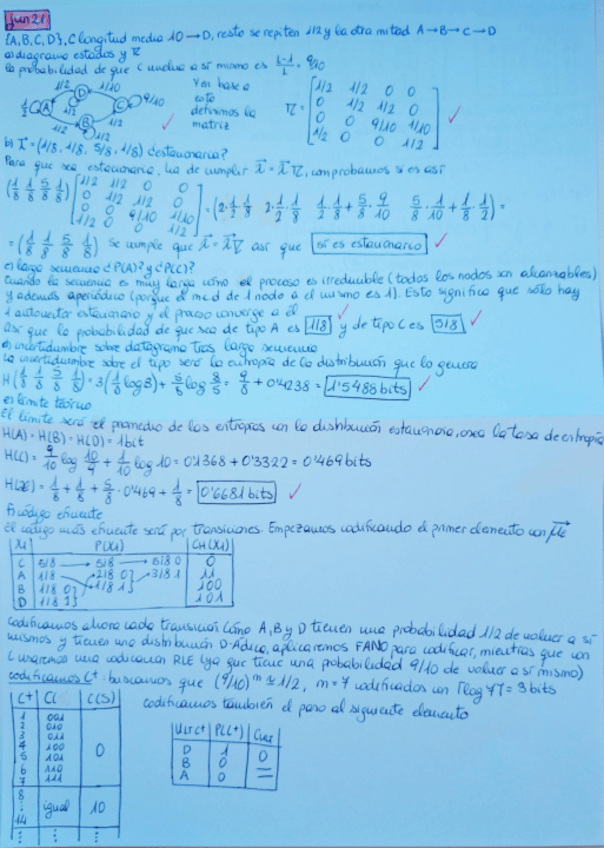 Jun 21
{A, B, C, D}, C longitud media 10 → D, resto se repiten 1/2 y la otra mitad A→B→C→D
a) diagrama estados y π
la probabilidad de que C vuelva a sí mismo es (L-1)/L = 9/10
1/2 A D B C 1/2 1/10 9/10 1/2 1/2 1/2 1/2
Y en base a
esto
definimos la
matriz
π = [1/2 1/2 0 0
0 1/2 1/2 0
0 0 9/10 1/10
1/2 0 0 1/2]
b) λ = (1/8, 1/8, 5/8, 1/8) ¿estacionaria?
Para que sea estacionaria, ha de cumplir λ = λπ, comprobamos si es así
(1/8 1/8 5/8 1/8) [1/2 1/2 0 0
0 1/2 1/2 0
0 0 9/10 1/10
1/2 0 0 1/2] = (2·1/2·1/8 2·1/2·1/8 1/2·1/8 + 5/8·9/10 5/8·1/10 + 1/8·1/2) =
= (1/8 1/8 5/8 1/8) se cumple que λ = λπ así que sí es estacionaria
c) larga secuencia ¿P(A)? y ¿P(C)?
Cuando la secuencia es muy larga como el proceso es irreducible (todos los nodos son alcanzables)
y además aperiódico (porque el mcd de 1 nodo a él mismo es 1). Esto significa que sólo hay
1 autovector estacionario y el proceso converge a él
Así que la probabilidad de que sea de tipo A es 1/8 y de tipo C es 5/8
d) incertidumbre sobre datagrama tras larga secuencia
La incertidumbre sobre el tipo será la entropía de la distribución que lo genera
H(1/8 1/8 5/8 1/8) = 3(1/8 log 8) + 5/8 log 8/5 = 9/8 + 0'4238 = 1'5488 bits
e) límite teórico
El límite será el promedio de las entropías con la distribución estacionaria, osea la tasa de entropía
H(A) = H(B) = H(D) = 1 bit
H(C) = 9/10 log 10/9 + 1/10 log 10 = 0'1368 + 0'3322 = 0'469 bits
H(X) = 1/8 + 1/8 + 5/8 · 0'469 + 1/8 = 0'6681 bits
f) código eficiente
El código más eficiente será por transiciones. Empezamos codificando el primer elemento con
X1 P(X1) CH(X1)
C 5/8 → 5/8 → 5/8 0 0
A 1/8 2/8 0 3/8 1 11
B 1/8 0 1/8 1 100
D 1/8 1 101
Codificamos ahora cada transición. Como A, B y D tienen una probabilidad 1/2 de volver a sí
mismos y tienen una distribución D-Ádica, aplicaremos FANO para codificar, mientras que con
C usaremos una codificación RLE (ya que tiene una probabilidad 9/10 de volver a sí mismo)
codificamos C+: buscamos que (9/10)^m ≈ 1/2, m = 7 codificados con ⌈log 7⌉ = 3 bits
codificamos también el paso al siguiente elemento
C+ C( C(S)
1 001
2 010
3 011
4 100 0
5 101
6 110
7 111
8
⋮ igual 10
14
⋮ ⋮ ⋮
P(C+)
D 1 0
B 0
A 0 —